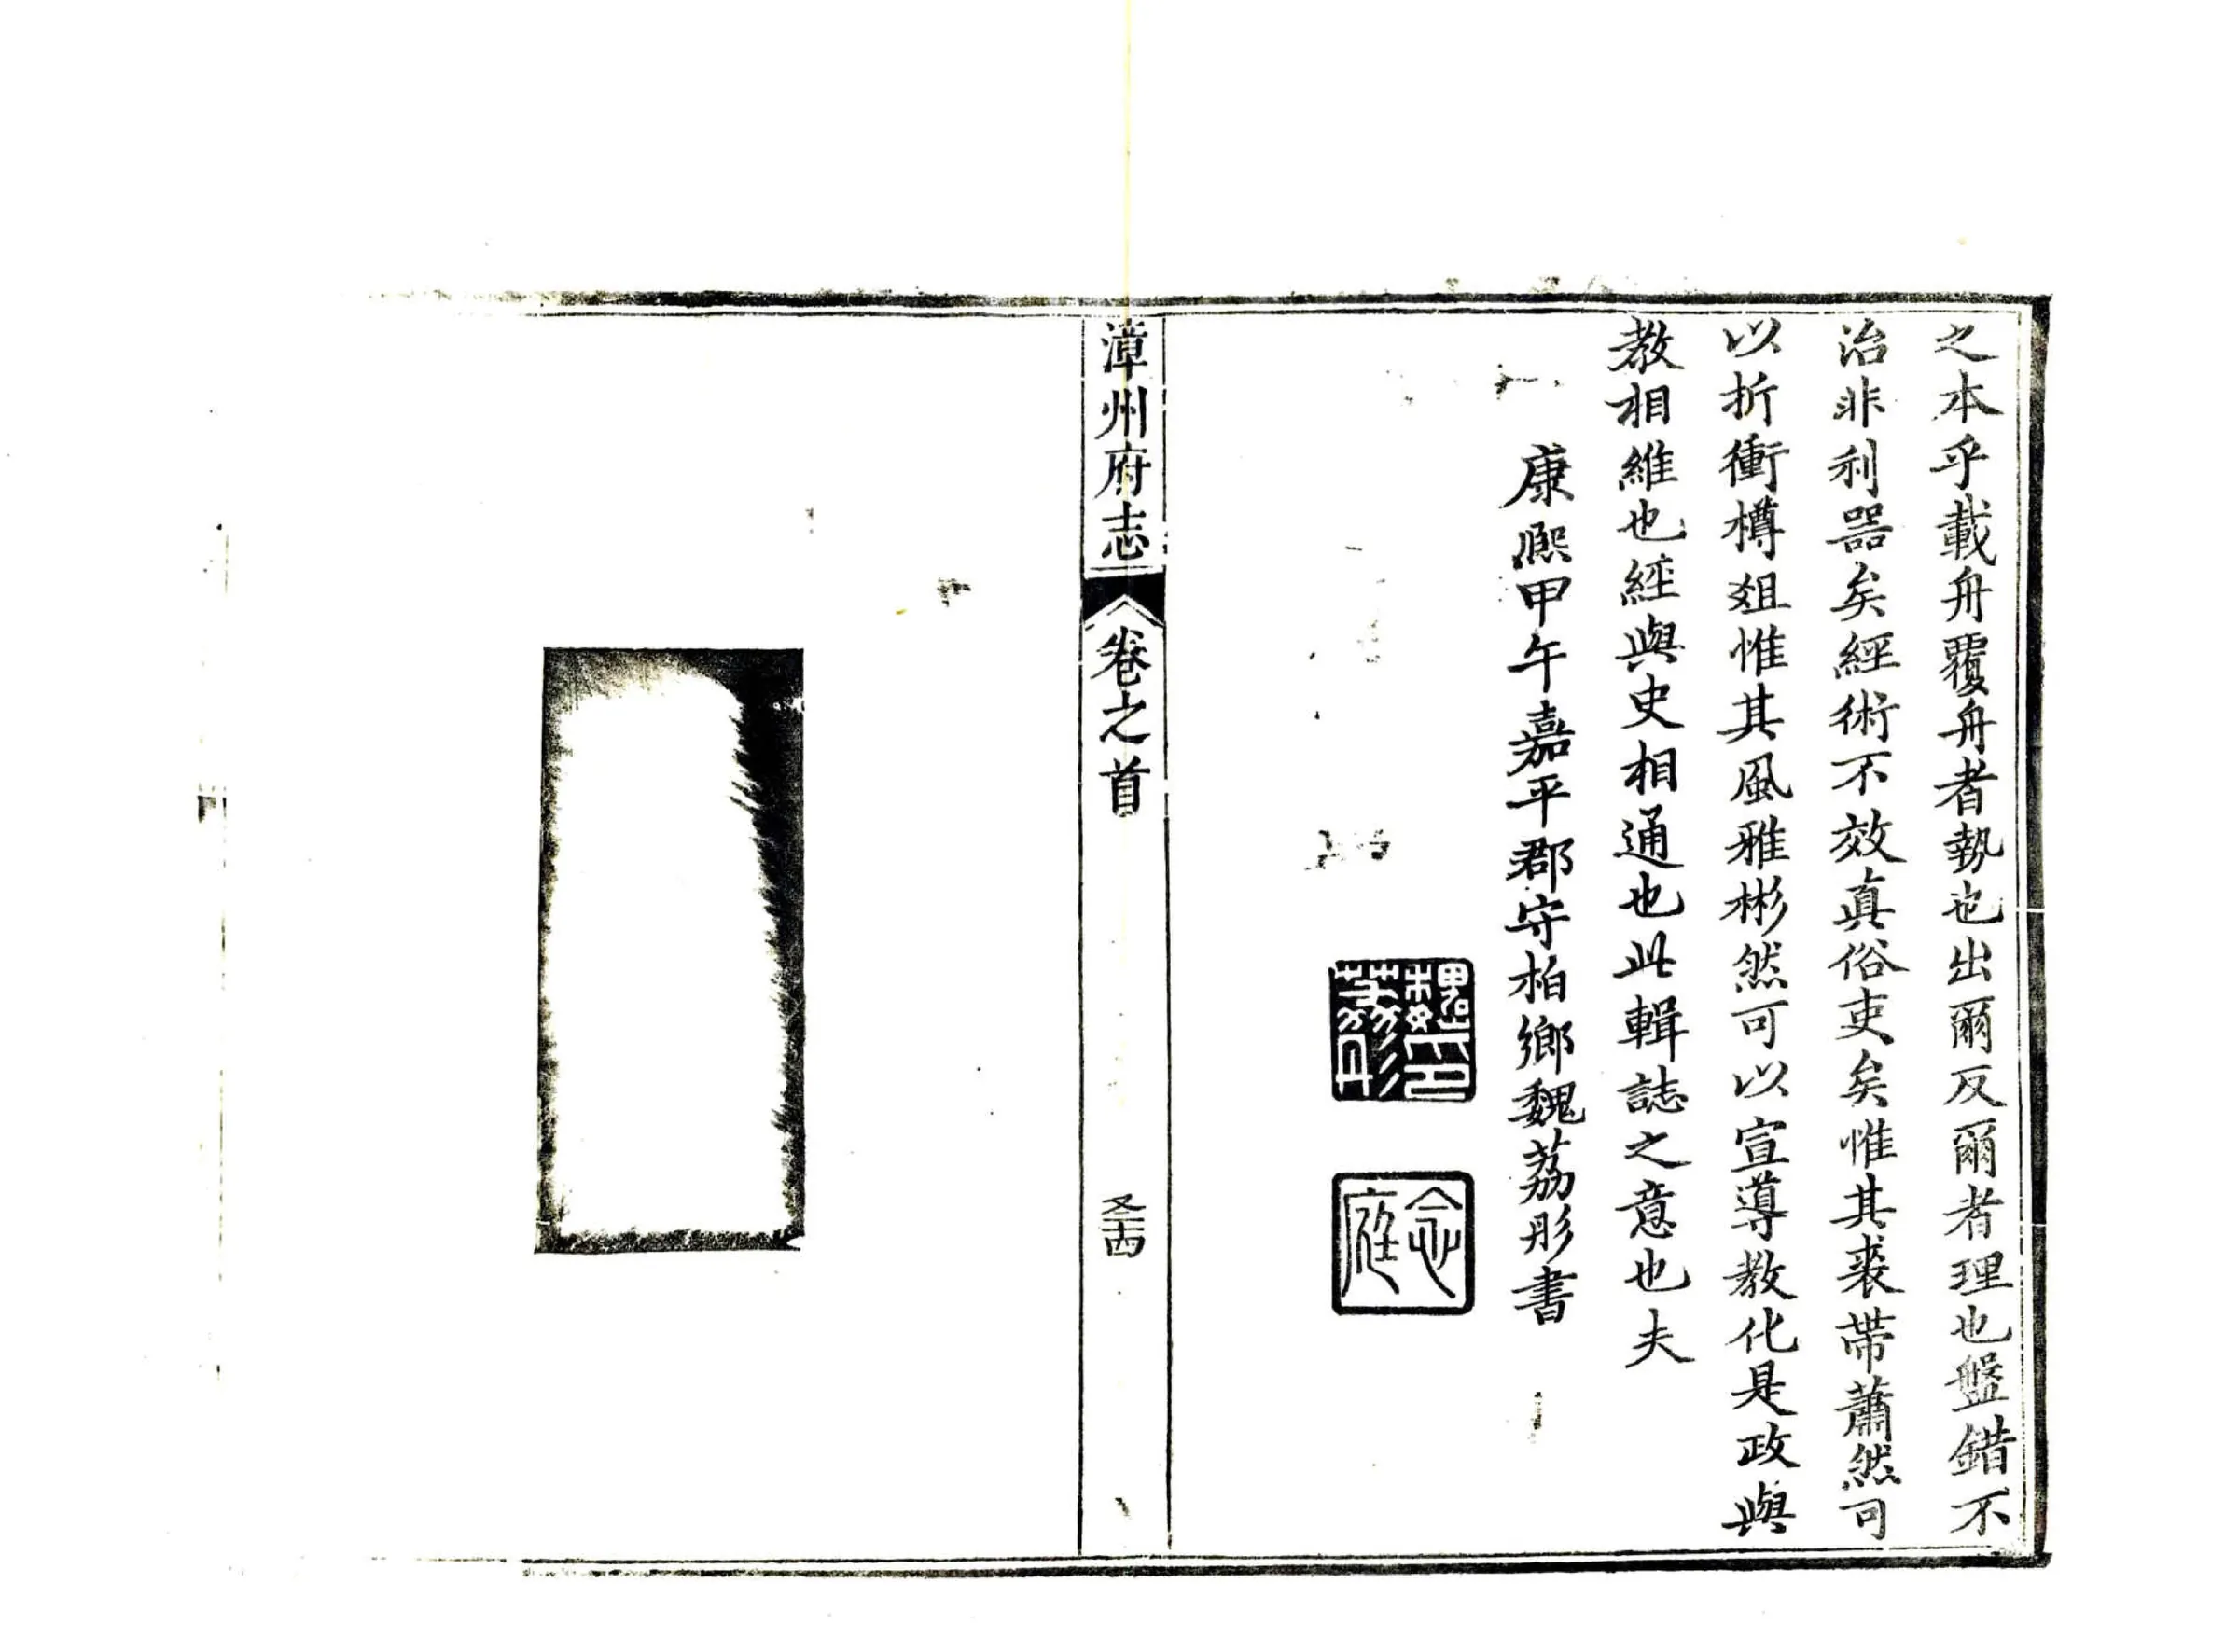 之本乎載舟覆舟者勢也出爾反爾者理也盤錯不
治非利器矣經術不效真俗吏矣惟其裘帶蕭然可
以折衝樽俎惟其風雅彬然可以宣導教化是政與
教相維也經與史相通也此輯誌之意也夫
康熙甲午嘉平郡守柏鄉魏荔彤書
魏荔彤印
念庭
漳州府志
卷之首